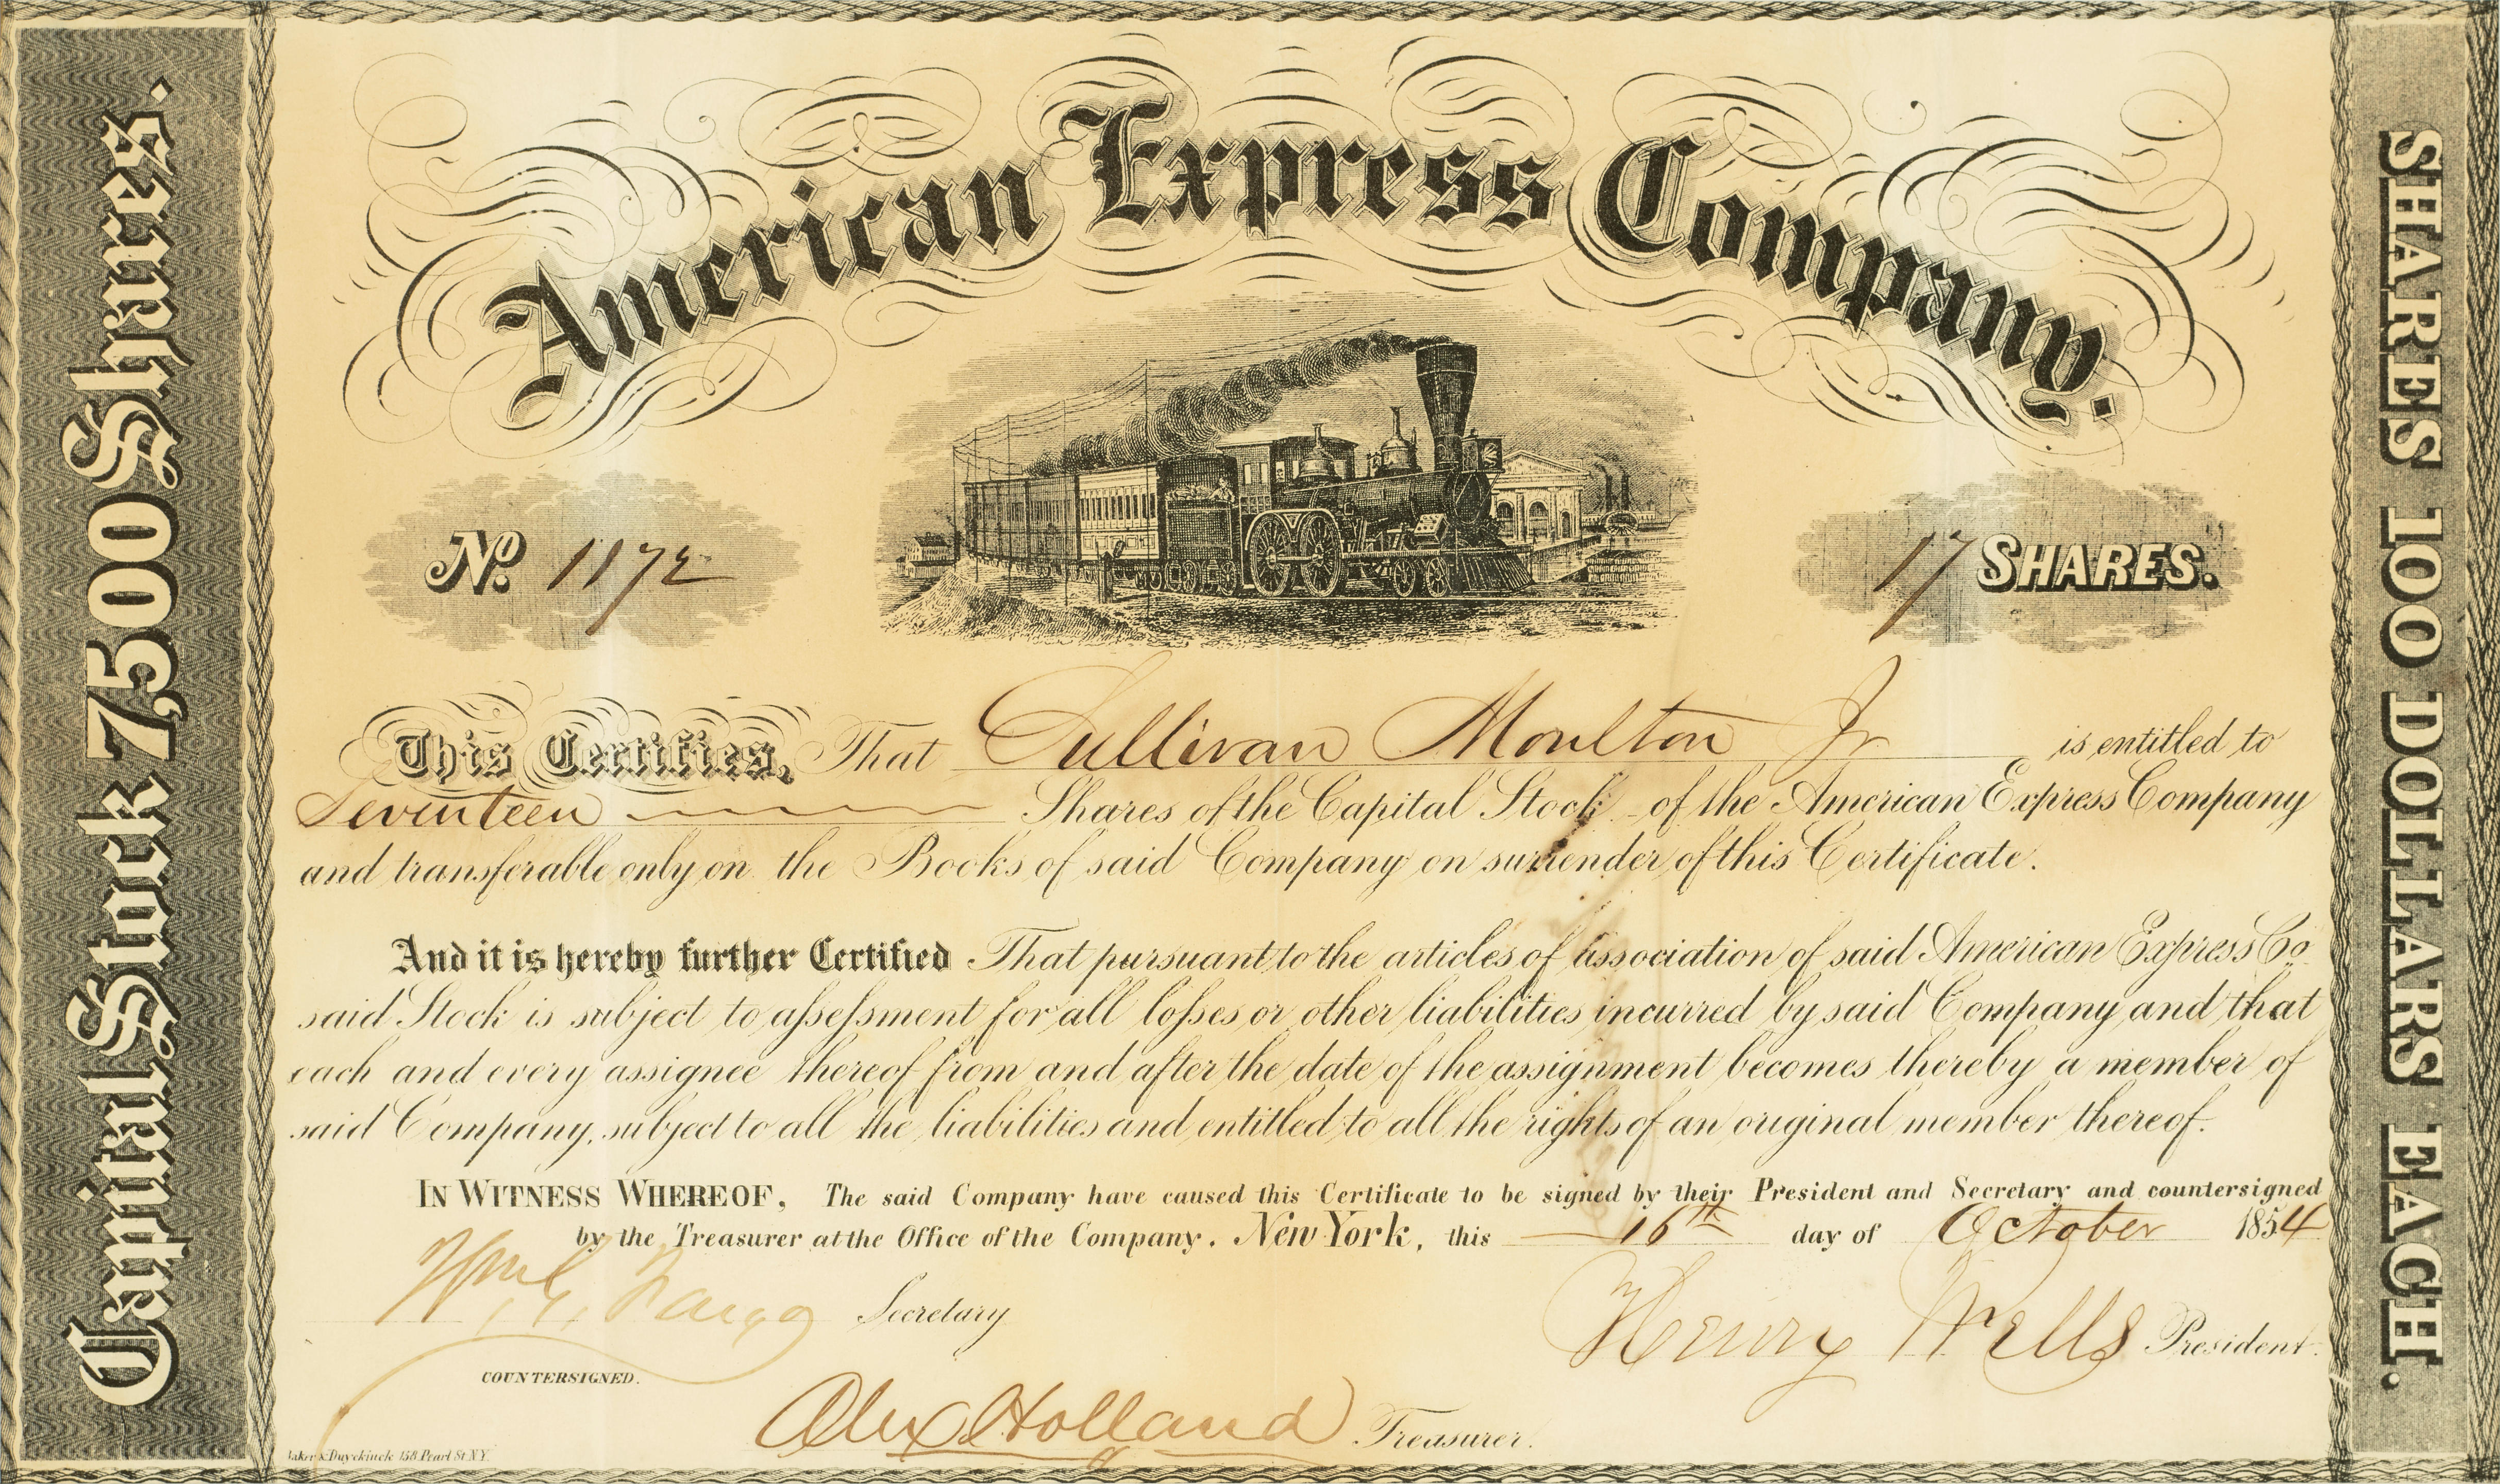 Capital Stock 7,500 Shares.
American Express Company.
No. 1172
17 SHARES.
This Certifies, That Sullivan Moulton Jr is entitled to
Seventeen Shares of the Capital Stock of the American Express Company
and transferable only on the Books of said Company on surrender of this Certificate.
And it is hereby further Certified That pursuant to the articles of association of said American Express Co
said Stock is subject to assessment for all losses or other liabilities incurred by said Company and that
each and every assignee thereof from and after the date of the assignment becomes thereby a member of
said Company, subject to all the liabilities and entitled to all the rights of an original member thereof.
IN WITNESS WHEREOF, The said Company have caused this Certificate to be signed by their President and Secretary and countersigned
by the Treasurer at the Office of the Company. New York, this 16th day of October 1854
Wm G. Fargo Secretary
Henry Wells President.
COUNTERSIGNED.
Alex Holland Treasurer.
Baker & Duyckinck 158 Pearl St N.Y.
SHARES 100 DOLLARS EACH.